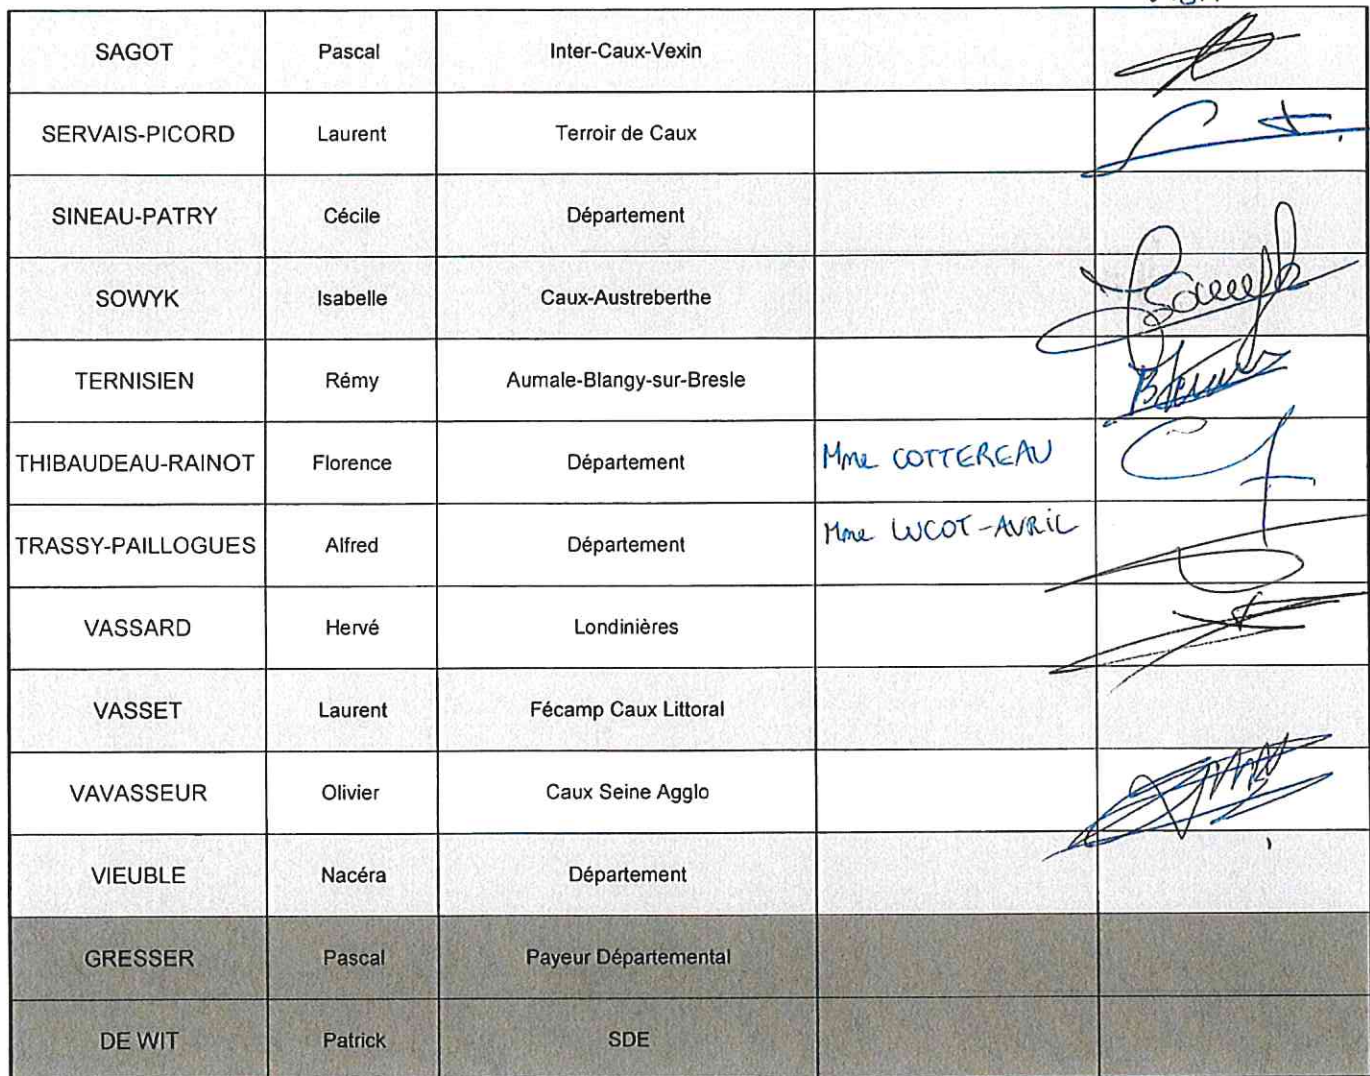 SAGOT Pascal Inter-Caux-Vexin
SERVAIS-PICORD Laurent Terroir de Caux
SINEAU-PATRY Cécile Département
SOWYK Isabelle Caux-Austreberthe
TERNISIEN Rémy Aumale-Blangy-sur-Bresle
THIBAUDEAU-RAINOT Florence Département Mme COTTEREAU
TRASSY-PAILLOGUES Alfred Département Mme LUCOT-AVRIL
VASSARD Hervé Londinières
VASSET Laurent Fécamp Caux Littoral
VAVASSEUR Olivier Caux Seine Agglo
VIEUBLE Nacéra Département
GRESSER Pascal Payeur Départemental
DE WIT Patrick SDE